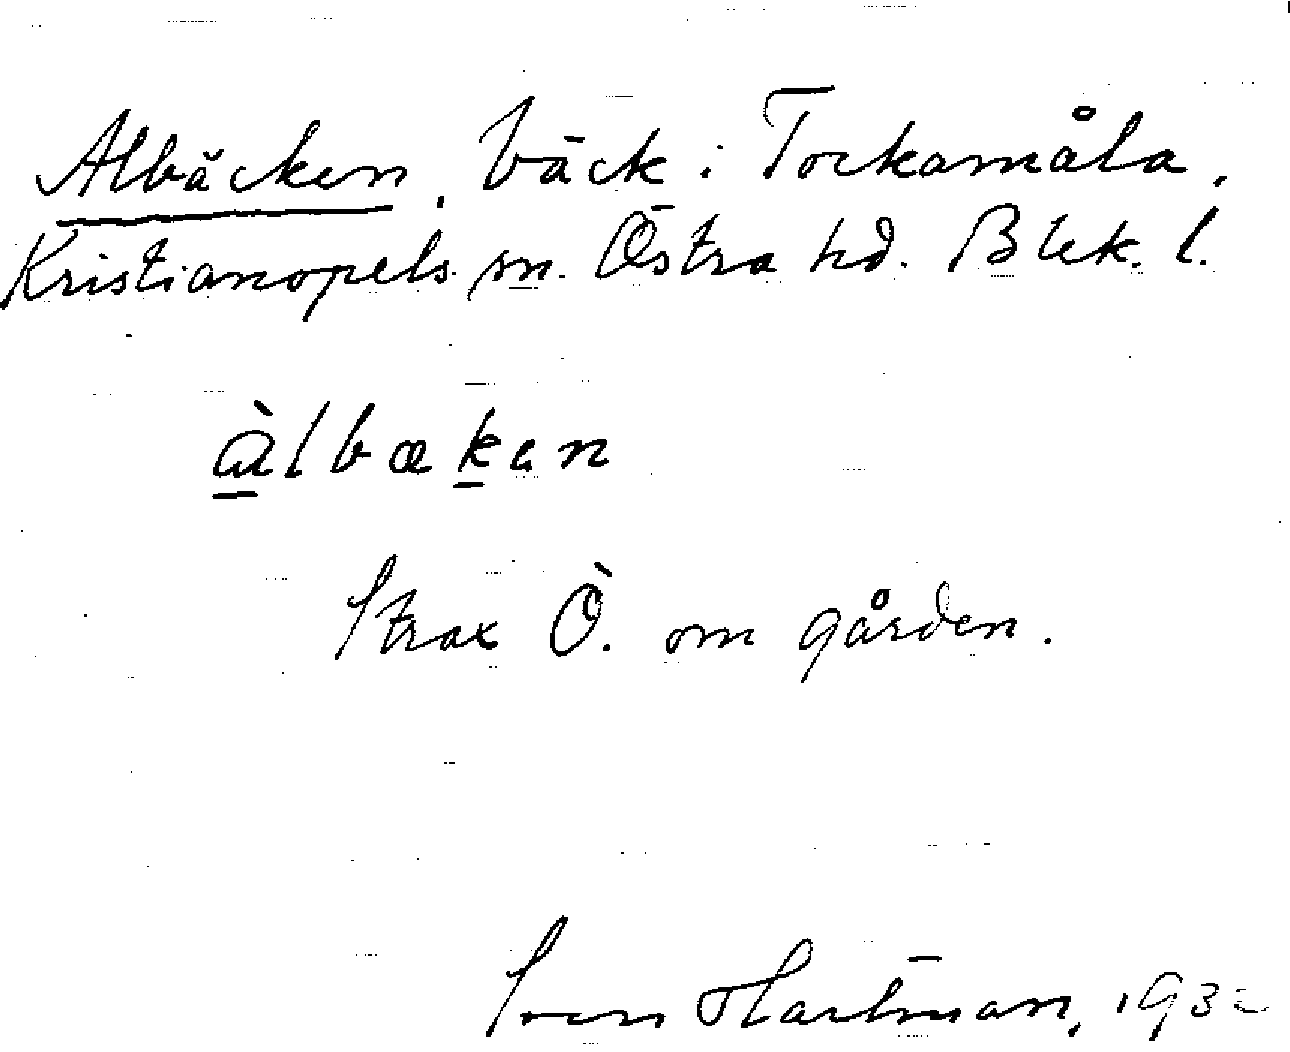 Albäcken, bäck i Tockamåla,
Kristianopels sn. Östra hd. Blek. l.
àlbækɘn
Strax Ö. om gården.
Sven Hartman, 1932